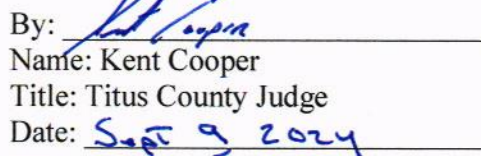 By: Kent Cooper
Name: Kent Cooper
Title: Titus County Judge
Date: Sept 9 2024